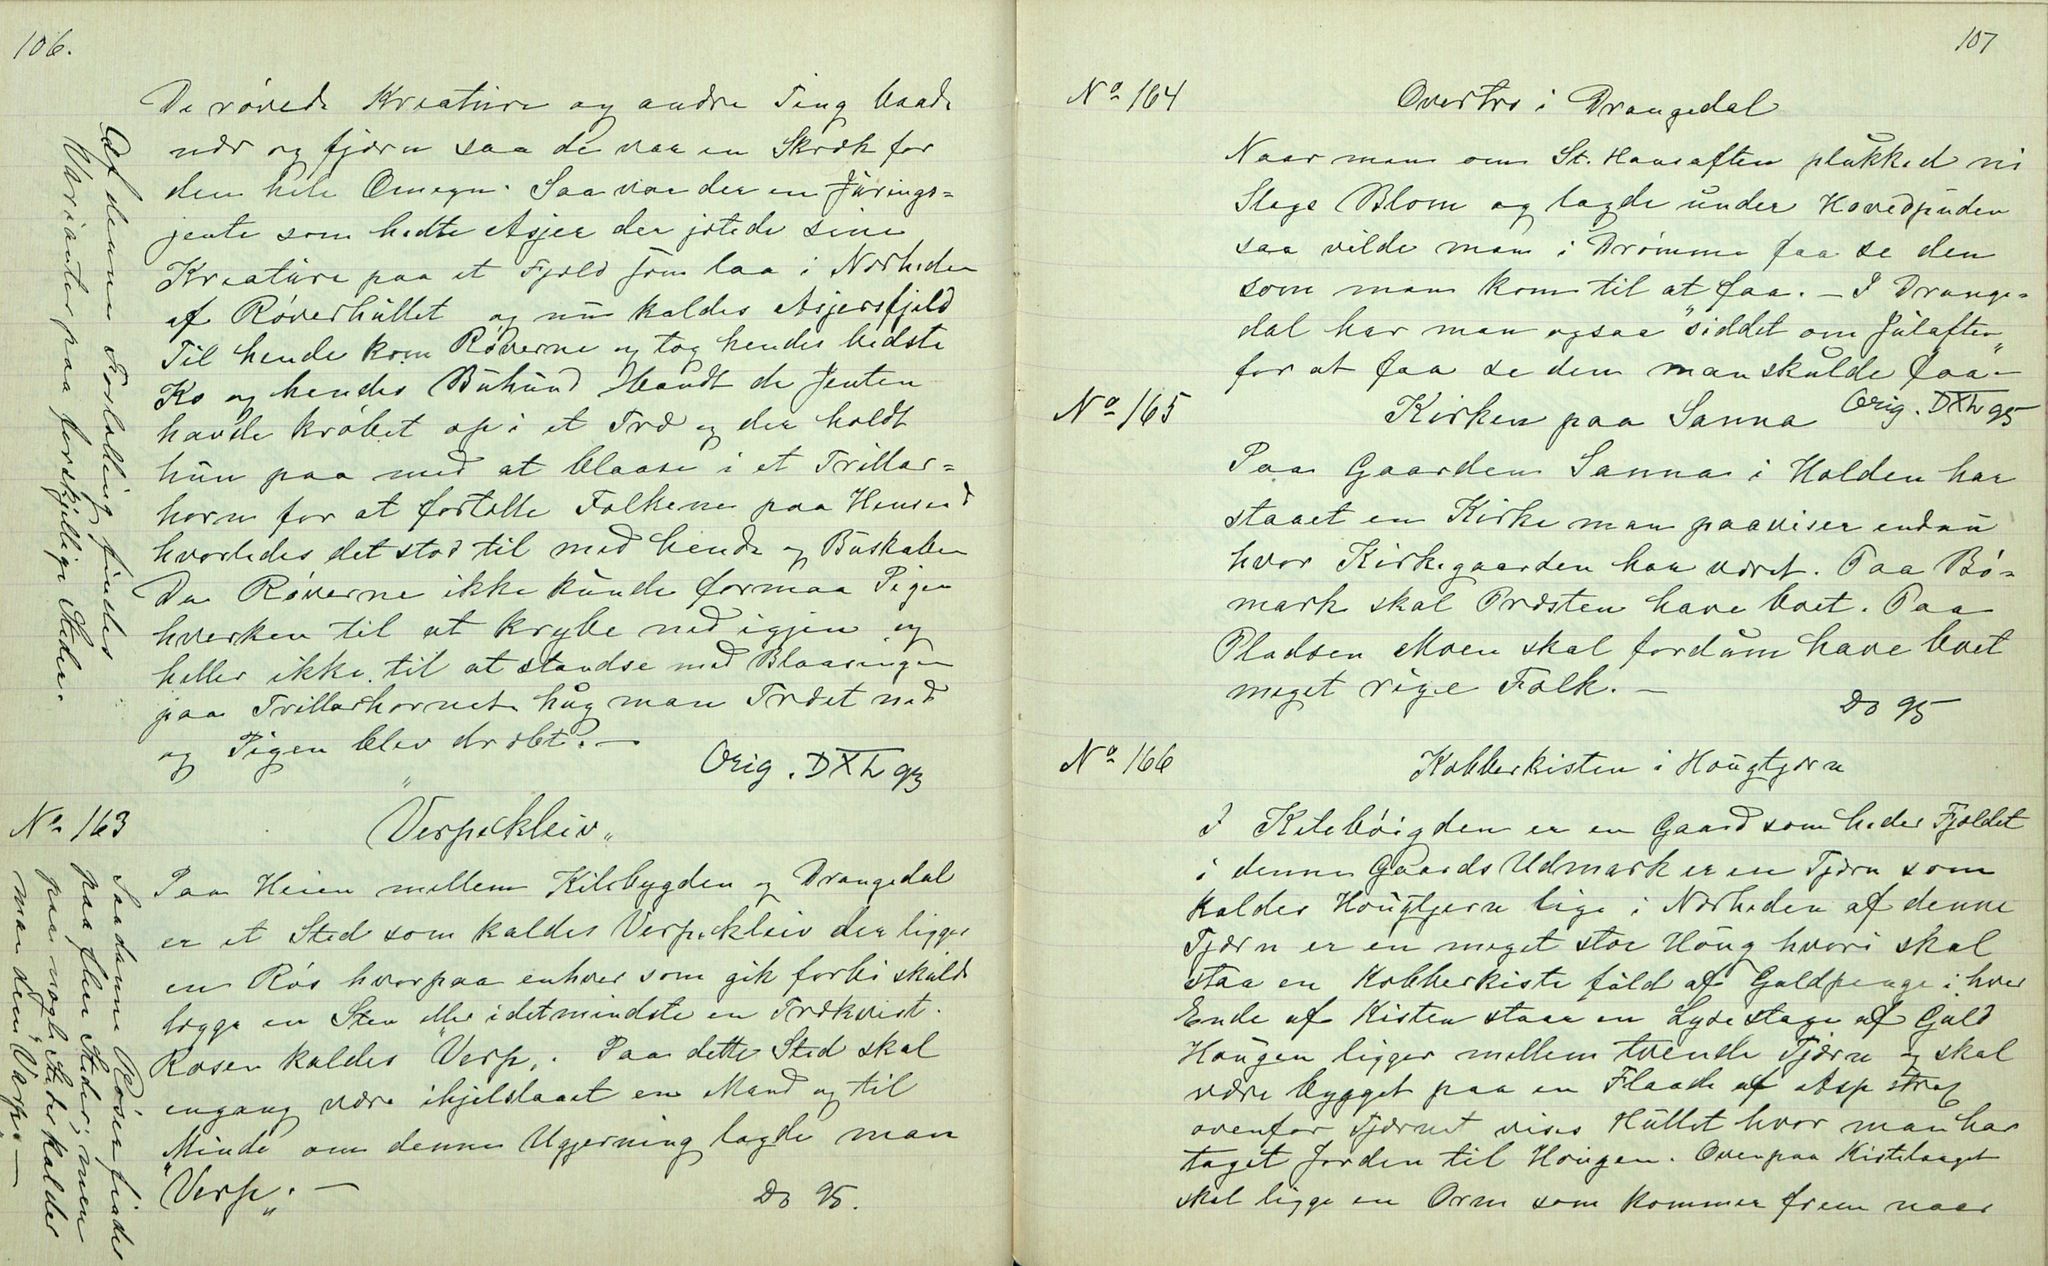 106.
De røvede Kreature og andre Ting baade
nær og fjærn saa de var en Skræk for
den hele Omegn. Saa var der en Jürings-
jente som hedte Asjer der jøtede sine
Kreatüre paa et Fjeld som laa i Nærheden
af Røverhüllet og nü kaldes Asjersfjeld
Til hende kom Røverne og tog hendes bedste
Ko og hendes Bühünd Bandt de Jenten
havde krøbet op i et Træ og der holdt
hün paa med at blaase i et Trillar-
horn for at fortelle Folkene paa Hensend
hvorledes det stod til med hende og Büskaben
Da Røverne ikke künde formaa Pigen
hverken til at krybe ned igjen og
heller ikke til at standse med Blaasingen
paa Trillarhornet hüg man Træet ned
og Pigen blev dræbt. —
Orig. DXL 93
Af denne Fortelling findes
Varianter paa forskjellige Steder.
No 163
"Verpekleiv"
Paa Heien mellem Kilebygden og Drangedal
er et Sted som kaldes Verpekleiv der ligger
en Rös hvorpaa enhver som gik forbi skülde
lægge en Sten eller idetmindste en Trækvist.
Rosen kaldes "Verp". Paa dette Sted skal
engang være ihjelslaaet en Mand og til
Minde om denne Ugjerning lagde man
"Verp". —
Do 95.
Saadanne Röser findes
paa flere Steder; men
paa nogle Steder kalder
man dem "Varp". —
107
No 164
Overtro i Drangedal
Naar man om St. Hansaften plükked ni
Slags Blom og lagde ünder Hovedpüden
saa vilde man i Drømme faa se den
som man kom til at faa. — I Drange-
dal har man ogsaa "siddet om Jülaften"
for at faa se den man skülde faa —
Orig. DXL 95
No 165
Kirken paa Sanna
Paa Gaarden Sanna i Holden har
staaet en Kirke man paaviser endnü
hvor Kirkegaarden har været. Paa Bø-
mark skal Præsten have boet. Paa
Pladsen Moen skal fordüm have boet
meget rige Folk. —
Do 95
No 166
Kobberkisten i Hougtjærn
I Kilebøigden er en Gaard som heder Fjeldet
i denne Gaards Udmark er en Tjærn som
kaldes Hoügtjern lige i Nærheden af denne
Tjærn er en meget stor Hoüg hvori skal
staa en Kobberkiste füld af Guldpenge i hver
Ende af Kisten staar en Lysestage af Guld
Haügen ligger mellem tvende Tjærn og skal
være bygget paa en Flaade af Asp strax
ovenfor Tjærnet vises Hüllet hvor man har
taget Jorden til Haügen. Ovenpaa Kistelaaget
skal ligge en Orm som kommer frem naar